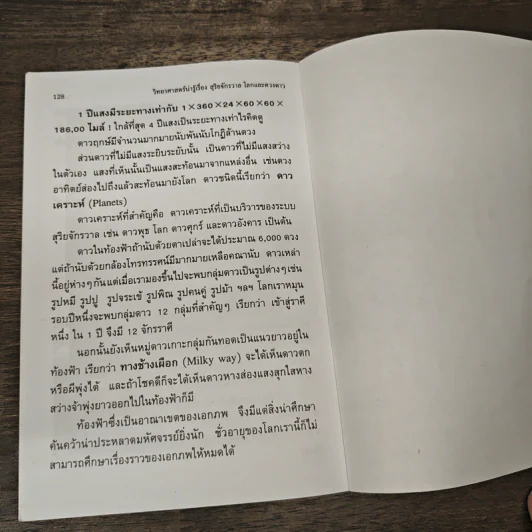 128
วิทยาศาสตร์น่ารู้เรื่อง สุริยจักรวาล โลกและดวงดาว
1 ปีแสงมีระยะทางเท่ากับ 1×360×24×60×60×
186,00 ไมล์ ! ใกล้ที่สุด 4 ปีแสงเป็นระยะทางเท่าไรคิดดู
ดาวฤกษ์มีจำนวนมากมายนับพันนับโกฏิล้านดวง
ส่วนดาวที่ไม่มีแสงระยิบระยับนั้น เป็นดาวที่ไม่มีแสงสว่าง
ในตัวเอง แสงที่เห็นนั้นเป็นแสงสะท้อนมาจากแหล่งอื่น เช่นดวง
อาทิตย์ส่องไปถึงแล้วสะท้อนมายังโลก ดาวชนิดนี้เรียกว่า ดาว
เคราะห์ (Planets)
ดาวเคราะห์ที่สำคัญคือ ดาวเคราะห์ที่เป็นบริวารของระบบ
สุริยจักรวาล เช่น ดาวพุธ โลก ดาวศุกร์ และดาวอังคาร เป็นต้น
ดาวในท้องฟ้าถ้านับด้วยตาเปล่าจะได้ประมาณ 6,000 ดวง
แต่ถ้านับด้วยกล้องโทรทรรศน์มีมากมายเหลือคณานับ ดาวเหล่า
นี้อยู่ห่างๆกันแต่เมื่อเรามองขึ้นไปจะพบกลุ่มดาวเป็นรูปต่างๆเช่น
รูปหมี รูปปู รูปจระเข้ รูปพิณ รูปคนคู่ รูปม้า ฯลฯ โลกเราหมุน
รอบปีหนึ่งจะพบกลุ่มดาว 12 กลุ่มที่สำคัญๆ เรียกว่า เข้าสู่ราศี
หนึ่ง ใน 1 ปี จึงมี 12 จักรราศี
นอกนั้นยังเห็นหมู่ดาวเกาะกลุ่มกันทอดเป็นแนวยาวอยู่ใน
ท้องฟ้า เรียกว่า ทางช้างเผือก (Milky way) จะได้เห็นดาวตก
หรือผีพุ่งไต้ และถ้าโชคดีก็จะได้เห็นดาวหางส่องแสงสุกใสหาง
สว่างจ้าพุ่งยาวออกไปในท้องฟ้าก็มี
ท้องฟ้าซึ่งเป็นอาณาเขตของเอกภพ จึงมีแต่สิ่งน่าศึกษา
ค้นคว้าน่าประหลาดมหัศจรรย์ยิ่งนัก ชั่วอายุของโลกเรานี้ก็ไม่
สามารถศึกษาเรื่องราวของเอกภพให้หมดได้